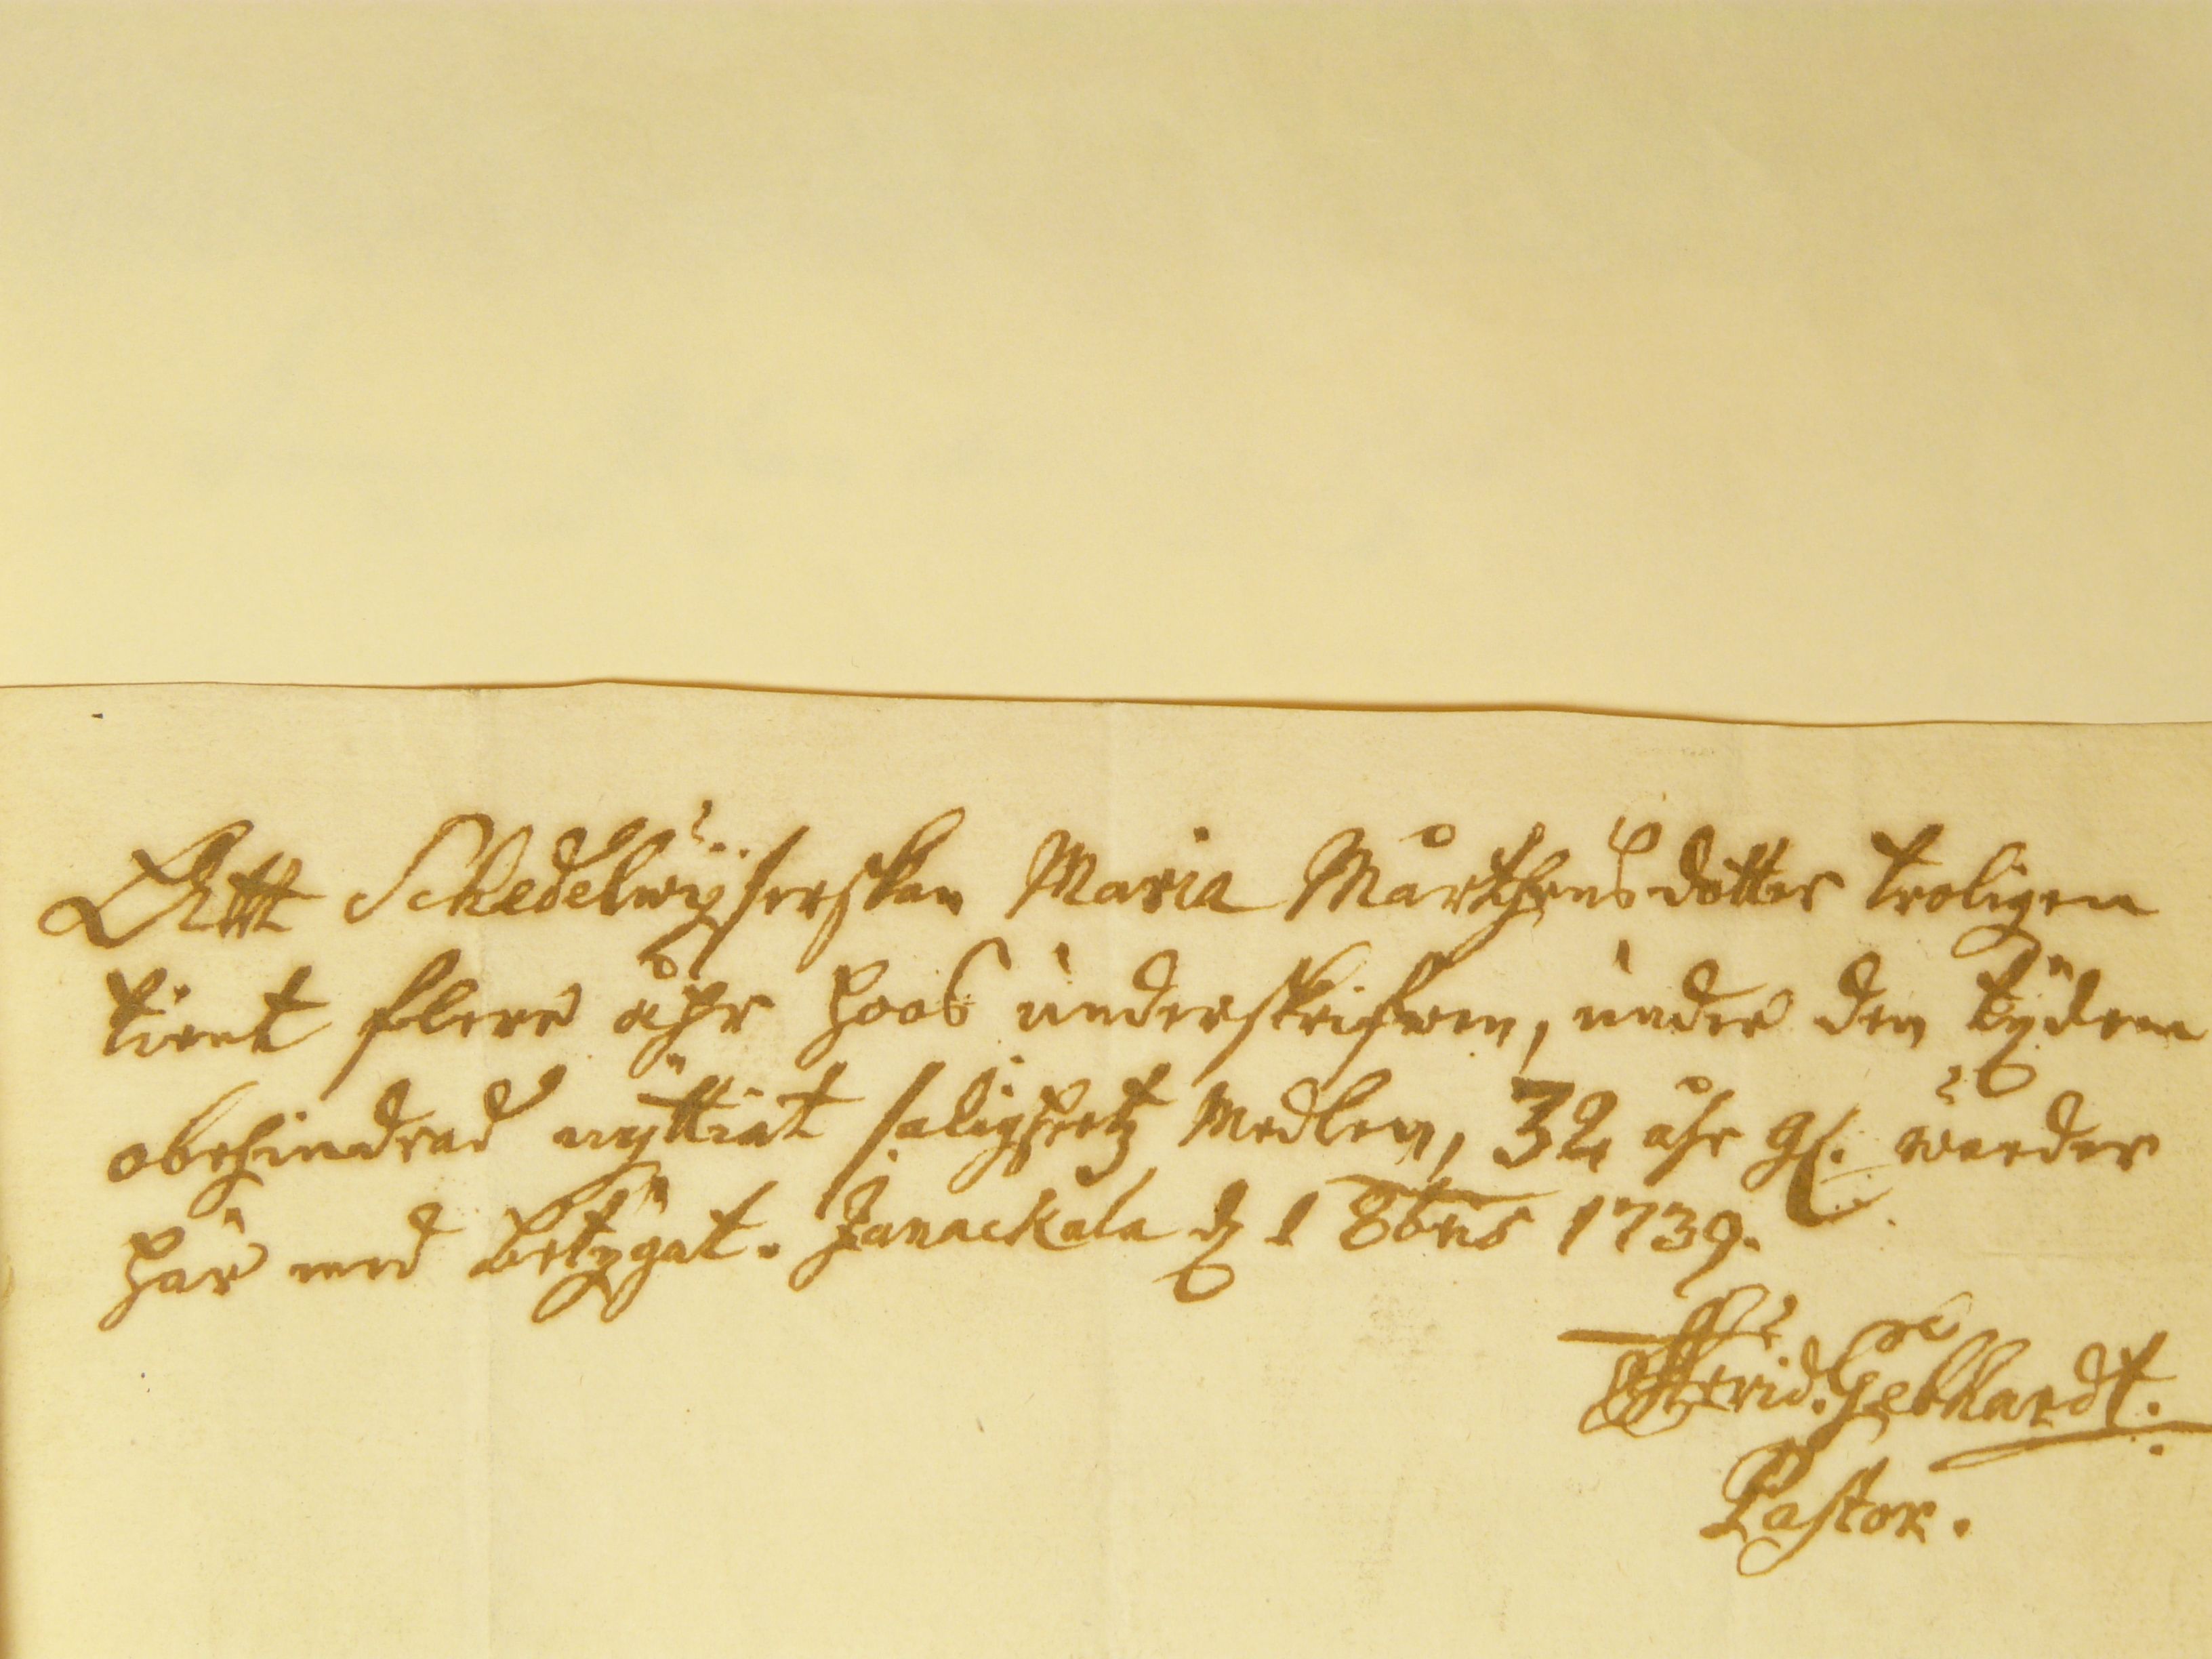 Att Schedelwijserskan Maria Mårthensdotter troligen
tient flere åhr hoos underskrifwen, under den tÿden
obehindrad nyttiat salighetz Medlen, 32 åhr gl. warder
här med betygat. Janackala d 1 8bris 1739.
Frid. Gebhardt.
Pastor.